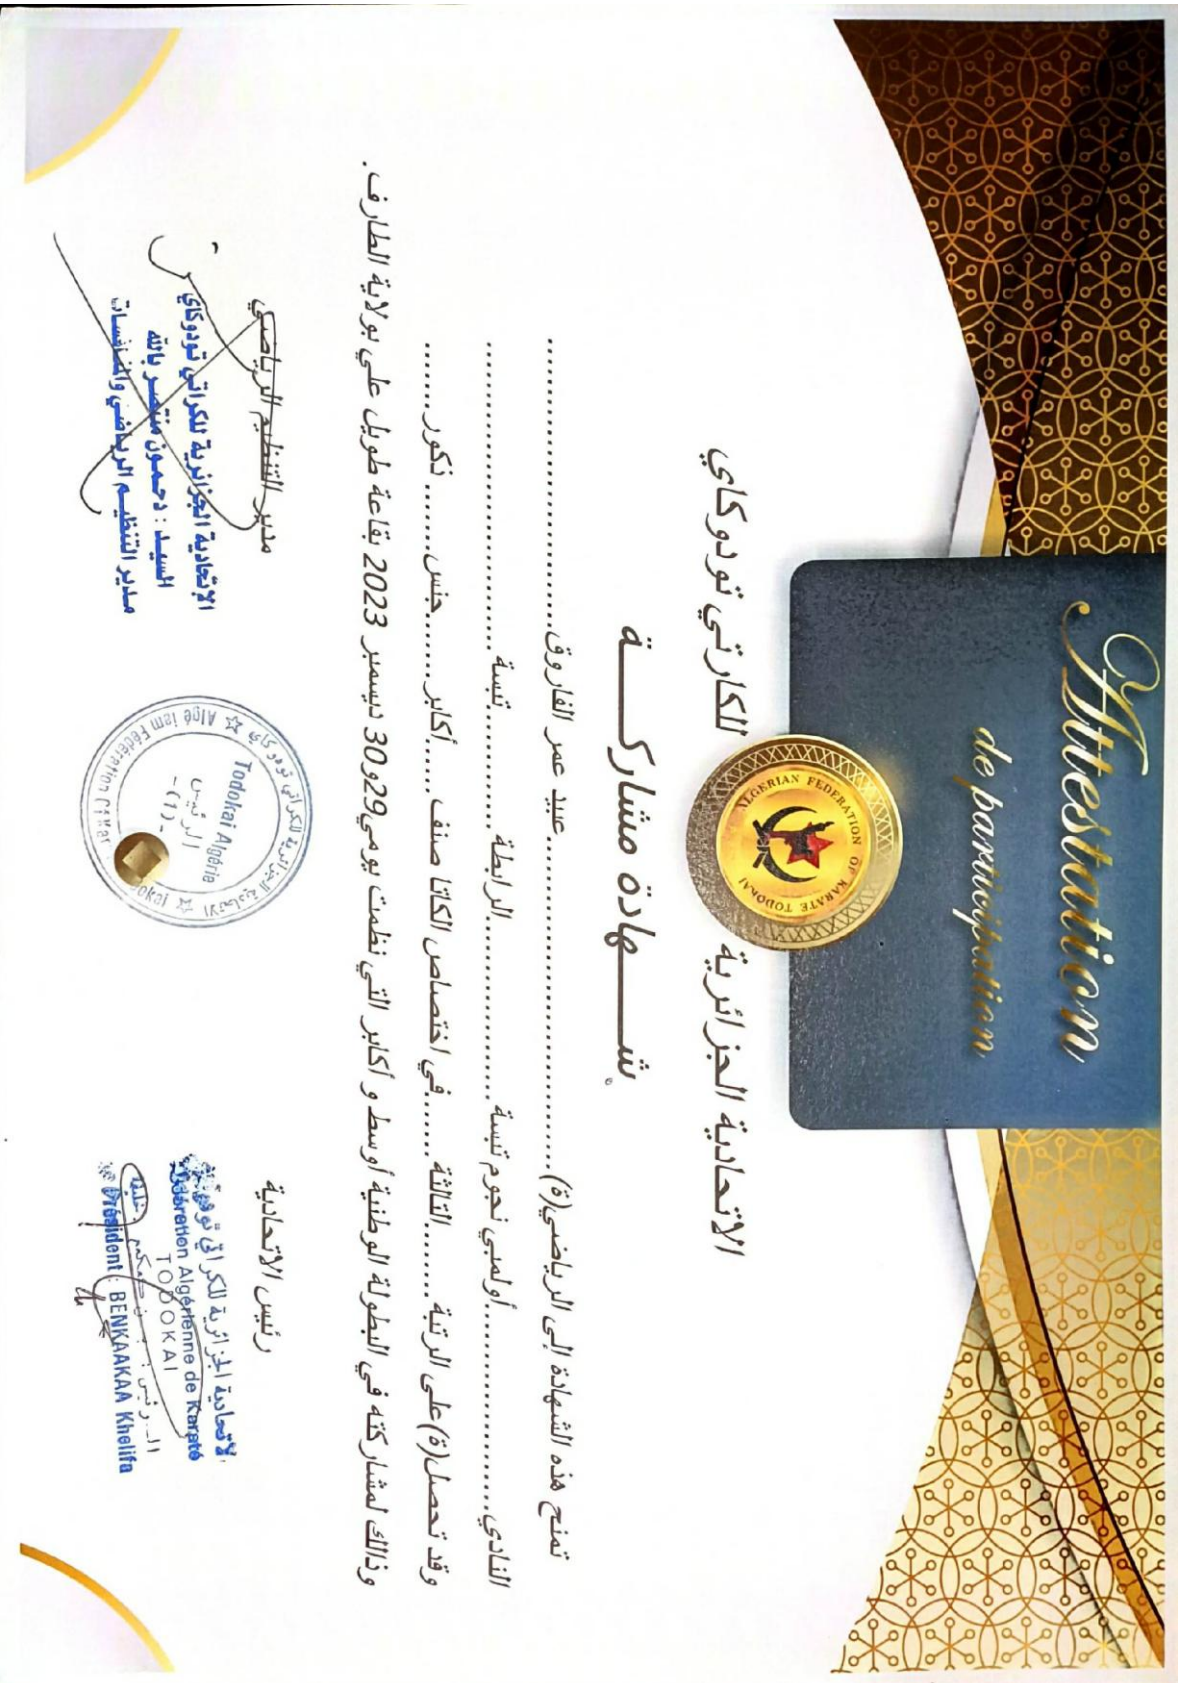 Attestation
de participation
الاتحادية الجزائرية للكارتي تودوكاي
ALGERIAN FEDERATION OF KARATE TODOKAI
شـــهادة مشاركـــة
تمنح هذه الشهادة إلى الرياضي(ة)..............................عبيد عمر الفاروق..............................
النادي....................أولمبي نجوم تبسة....................الرابطة............تبسة..............................
وقد تحصل(ة)على الرتبة.......الثالثة.......في اختصاص الكاتا صنف.....أكابر.......جنس...... ذكور......
وذالك لمشاركته في البطولة الوطنية أوسط و أكابر التي نظمت يومي29و30 ديسمبر 2023 بقاعة طويل علي بولاية الطارف.
رئيس الاتحادية
الاتحادية الجزائرية للكراتي تودوكاي
Fédération Algérienne de Karaté
TODOKAI
Président : BENKAAKAA Khelifa
الاتحادية الجزائرية للكراتي تودوكاي
Todokai Algéria
الرئيس
-(1)-
مدير التنظيم الرياضي
الإتحادية الجزائرية للكراتي تودوكاي
السيد : دحمون منتصر بالله
مدير التنظيم الرياضي والمنافسات